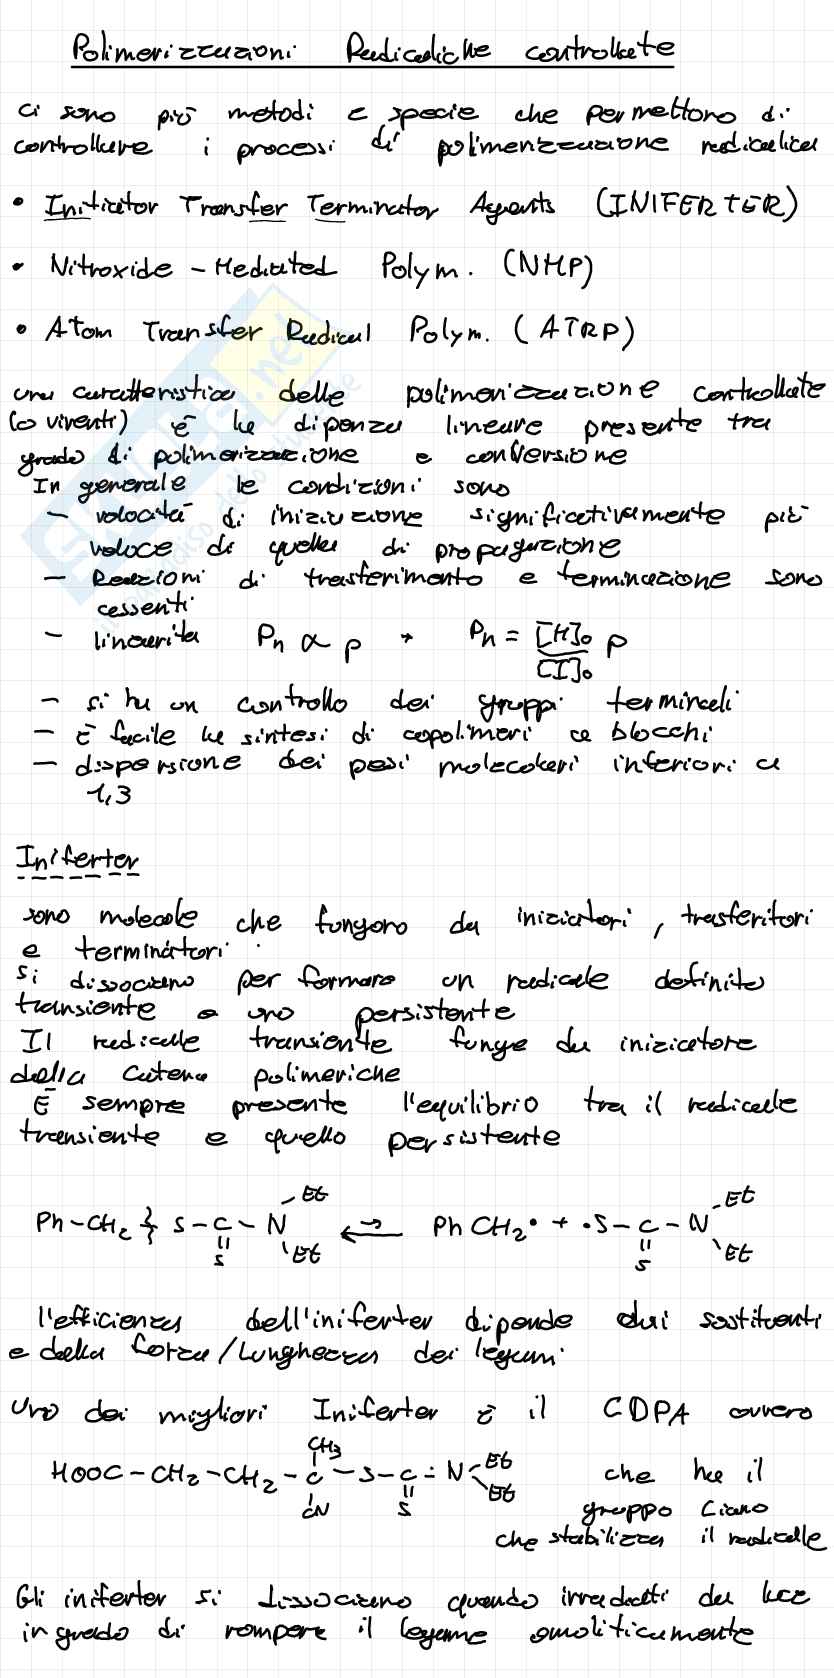 Polimerizzazioni Radicaliche controllate
Ci sono più metodi e specie che permettono di
controllare i processi di polimerizzazione radicalica
• Initiator Transfer Terminator Agents (INIFERTER)
• Nitroxide-Mediated Polym. (NMP)
• Atom Transfer Radical Polym. (ATRP)
una caratteristica delle polimerizzazione controllate
(o viventi) è la dipenza lineare presente tra
grado di polimerizzazione e conversione
In generale le condizioni sono
- velocità di iniziazione significativamente più
veloce di quella di propagazione
- Reazioni di trasferimento e terminazione sono
assenti
- linearità Pn ∝ p → Pn = [M]₀/[I]₀ p
- si ha un controllo dei gruppi terminali
- È facile la sintesi di copolimeri a blocchi
- dispersione dei pesi molecolari inferiori a
1,3
Iniferter
sono molecole che fungono da iniziatori, trasferitori
e terminatori.
si dissociano per formare un radicale definito
transiente e uno persistente
Il radicale transiente funge da iniziatore
della catena polimeriche
È sempre presente l'equilibrio tra il radicale
transiente e quello persistente
Ph-CH₂ } S-C-N Et ⇌ PhCH₂• + •S-C-N Et
S Et S Et
l'efficienza dell'iniferter dipende dai sostituenti
e dalla forza/lunghezza dei legami
Uno dei migliori Iniferter è il CDPA ovvero
CH₃
HOOC-CH₂-CH₂-C-S-C-N Et che ha il
CN S Et gruppo ciano
che stabilizza il radicale
Gli iniferter si dissociano quando irradiati da luce
in grado di rompere il legame omoliticamente
SKUOLA.net
il paradiso dello studente